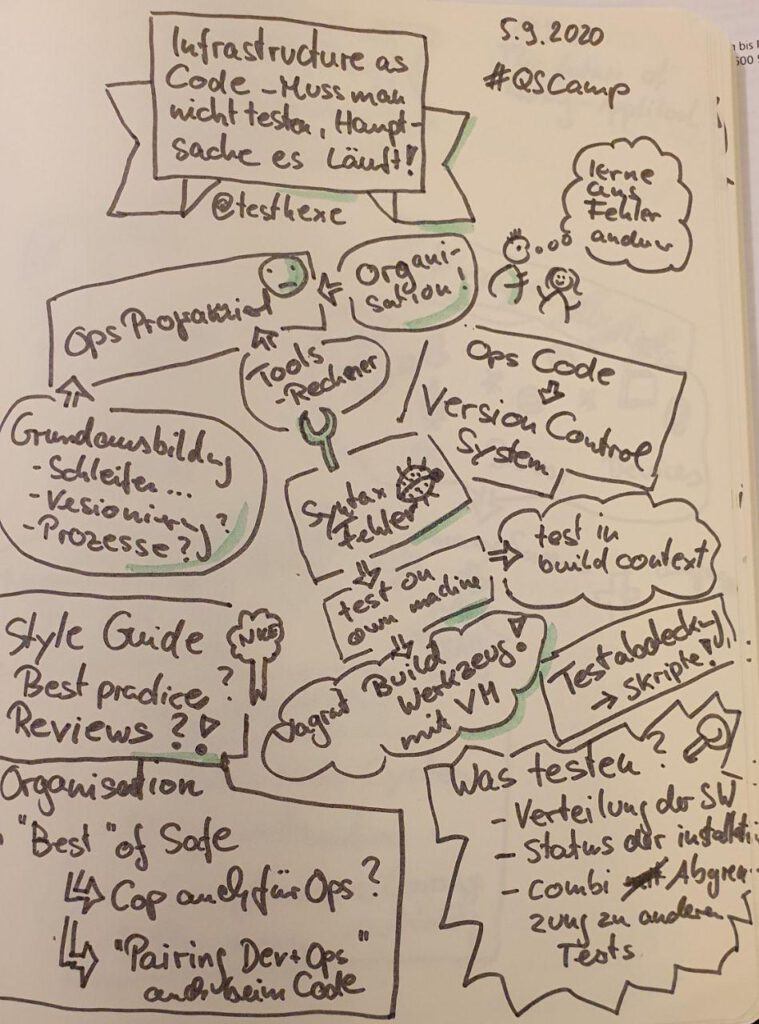 5.9.2020
#QSCamp
Infrastructure as
Code - Muss man
nicht testen, Haupt-
sache es läuft!
@testhexe
lerne
aus
Fehler
anderer
Organi-
sation!
Ops Programmiert
Tools
- Rechner
Ops Code
Version Control
System
Grundausbildung
- Schleifen...
- Vesionierung?
- Prozesse?
Syntax
Fehler
test on
own machine
test in
build context
Style Guide
Best practice?
Reviews?!
Vagrat Build
Werkzeug!
mit VM
Testabdeckung
→ Skripte!
Organisation
"Best" of Safe
Cop auch für Ops?
"Pairing Dev+Ops"
auch beim Code
Was testen?
- Verteilung der SW
- Status der installati
- Combi Abgren
zung zu anderen
Tests
n bis
600